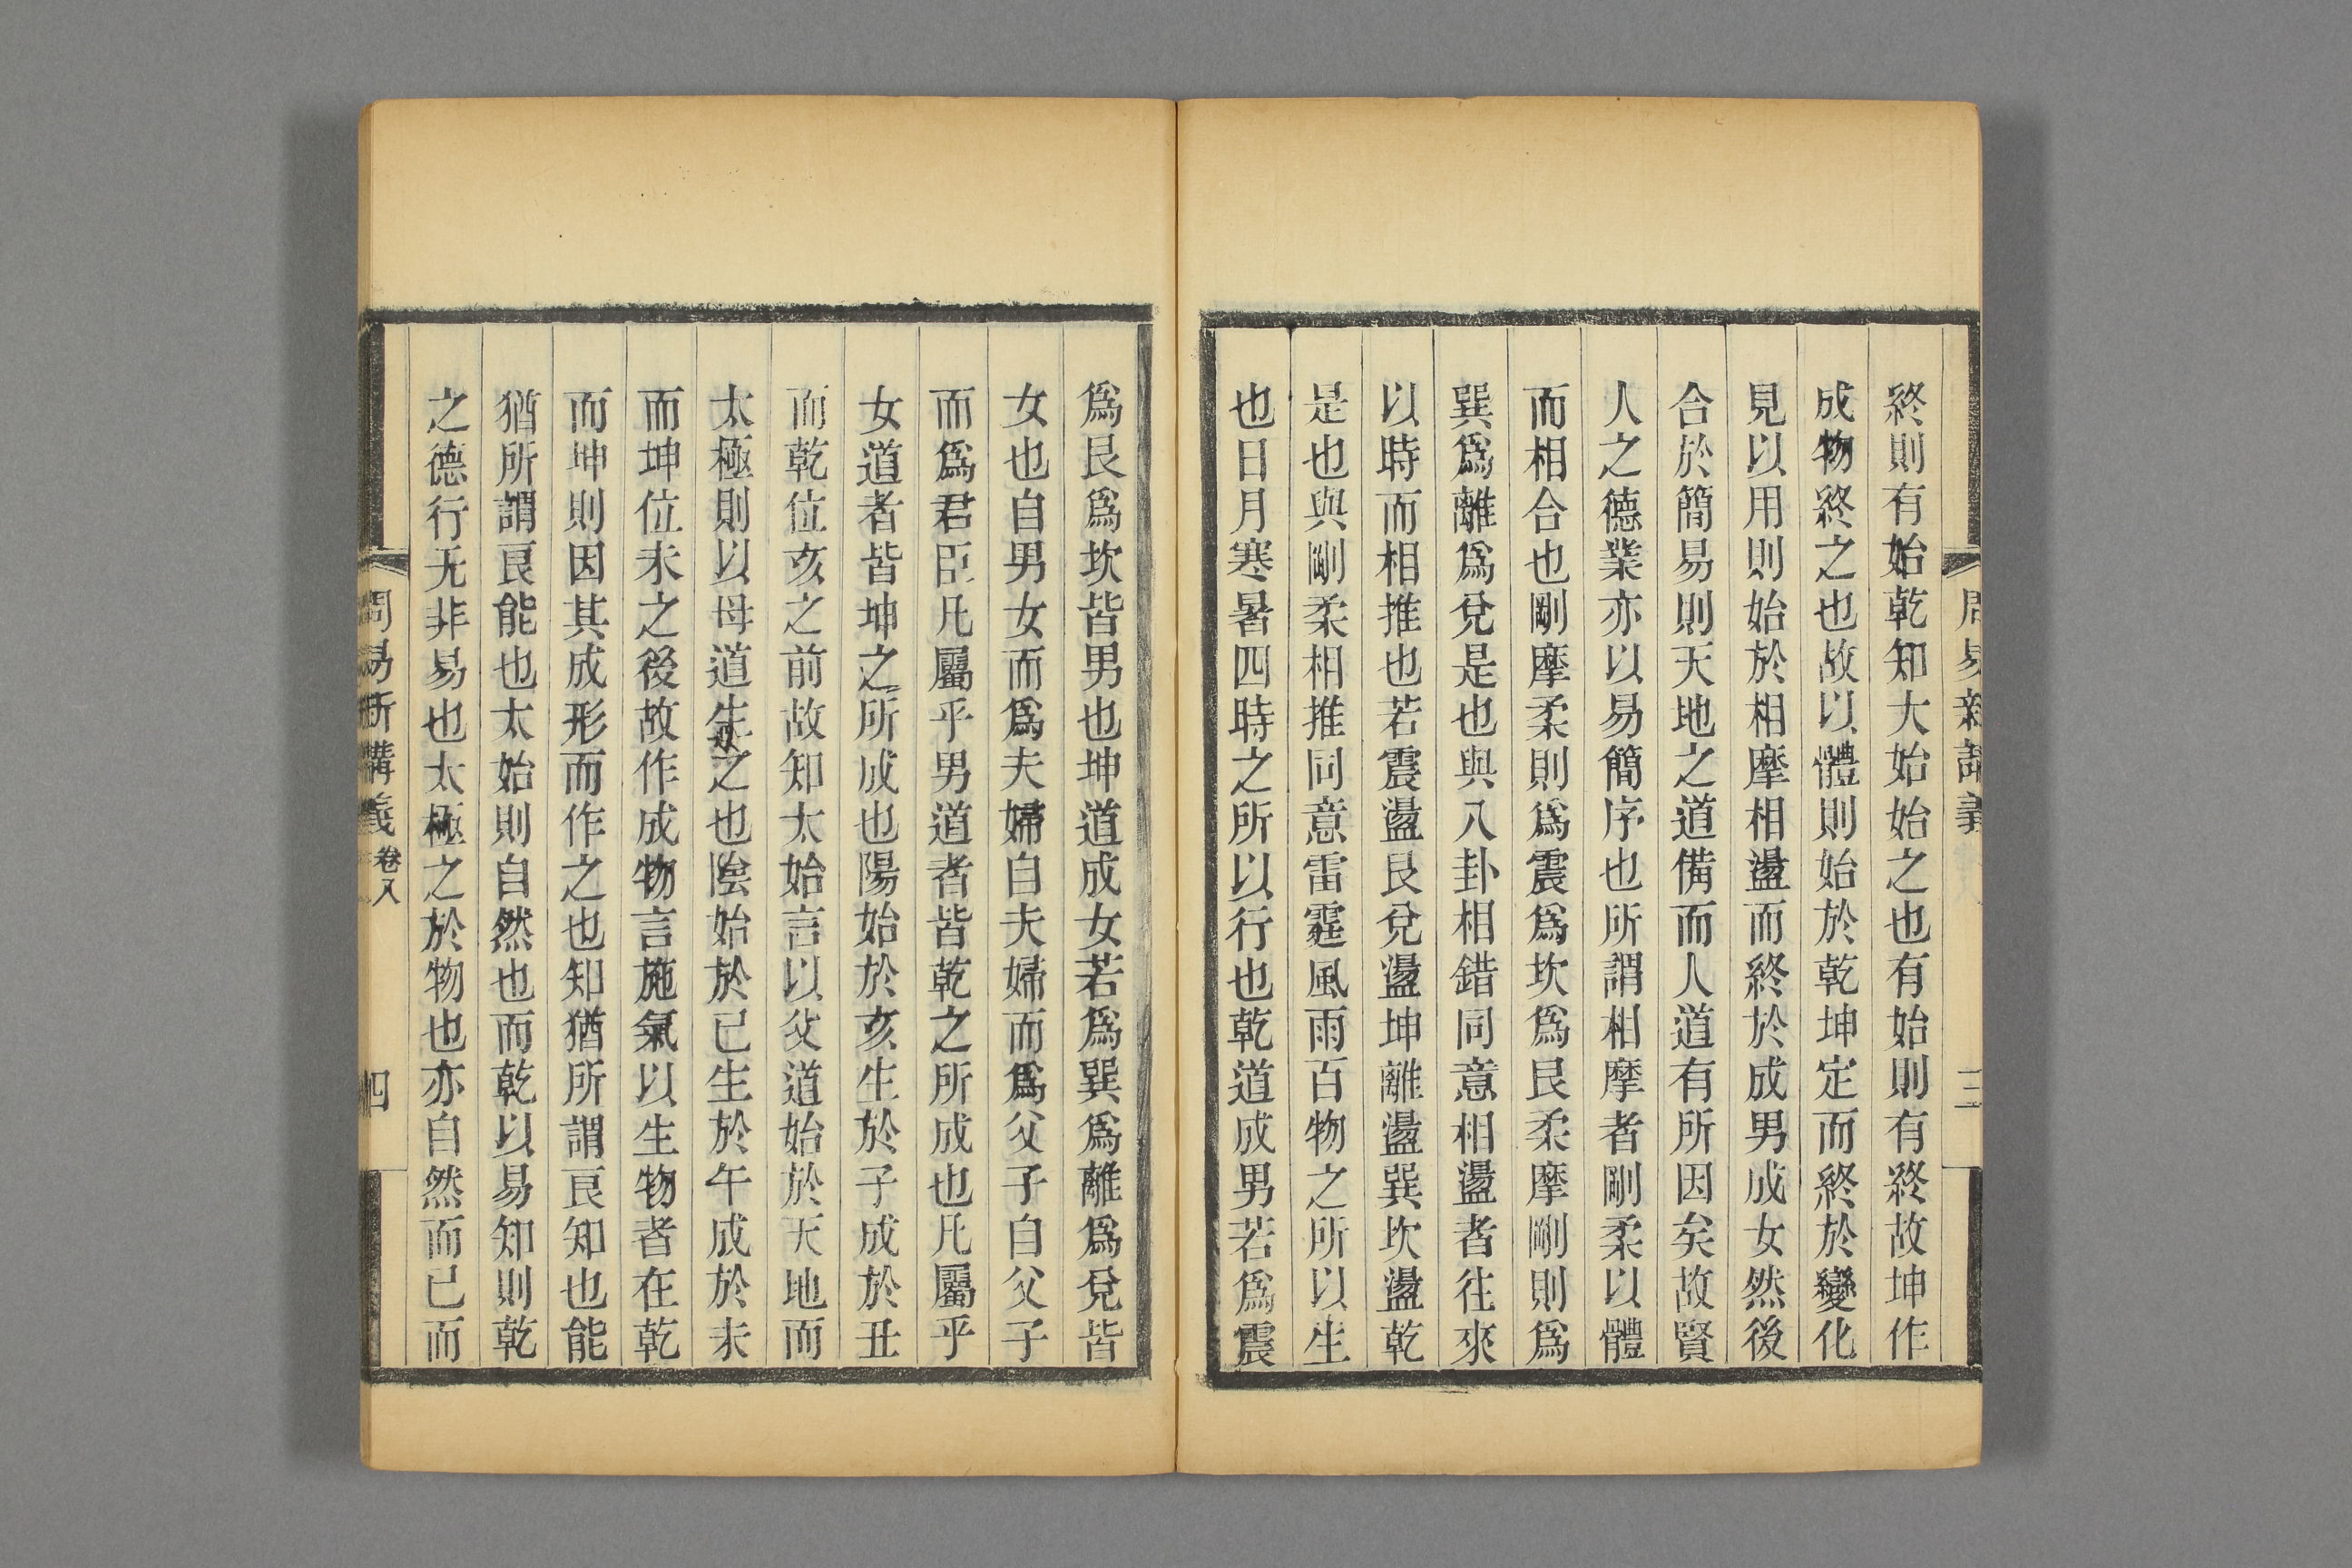 周易新講義
三
終則有始乾知大始始之也有始則有終故坤作
成物終之也故以體則始於乾坤定而終於變化
見以用則始於相摩相盪而終於成男成女然後
合於簡易則天地之道備而人道有所因矣故賢
人之德業亦以易簡序也所謂相摩者剛柔以體
而相合也剛摩柔則爲震爲坎爲艮柔摩剛則爲
巽爲離爲兌是也與八卦相錯同意相盪者往來
以時而相推也若震盪艮兌盪坤離盪巽坎盪乾
是也與剛柔相推同意雷霆風雨百物之所以生
也日月寒暑四時之所以行也乾道成男若爲震
爲艮爲坎皆男也坤道成女若爲巽爲離爲兌皆
女也自男女而爲夫婦自夫婦而爲父子自父子
而爲君臣凡屬乎男道者皆乾之所成也凡屬乎
女道者皆坤之所成也陽始於亥生於子成於丑
而乾位亥之前故知太始言以父道始於天地而
太極則以母道生之也陰始於已生於午成於未
而坤位未之後故作成物言施氣以生物者在乾
而坤則因其成形而作之也知猶所謂良知也能
猶所謂良能也太始則自然也而乾以易知則乾
之德行无非易也太極之於物也亦自然而已而
周易新講義 卷八
四